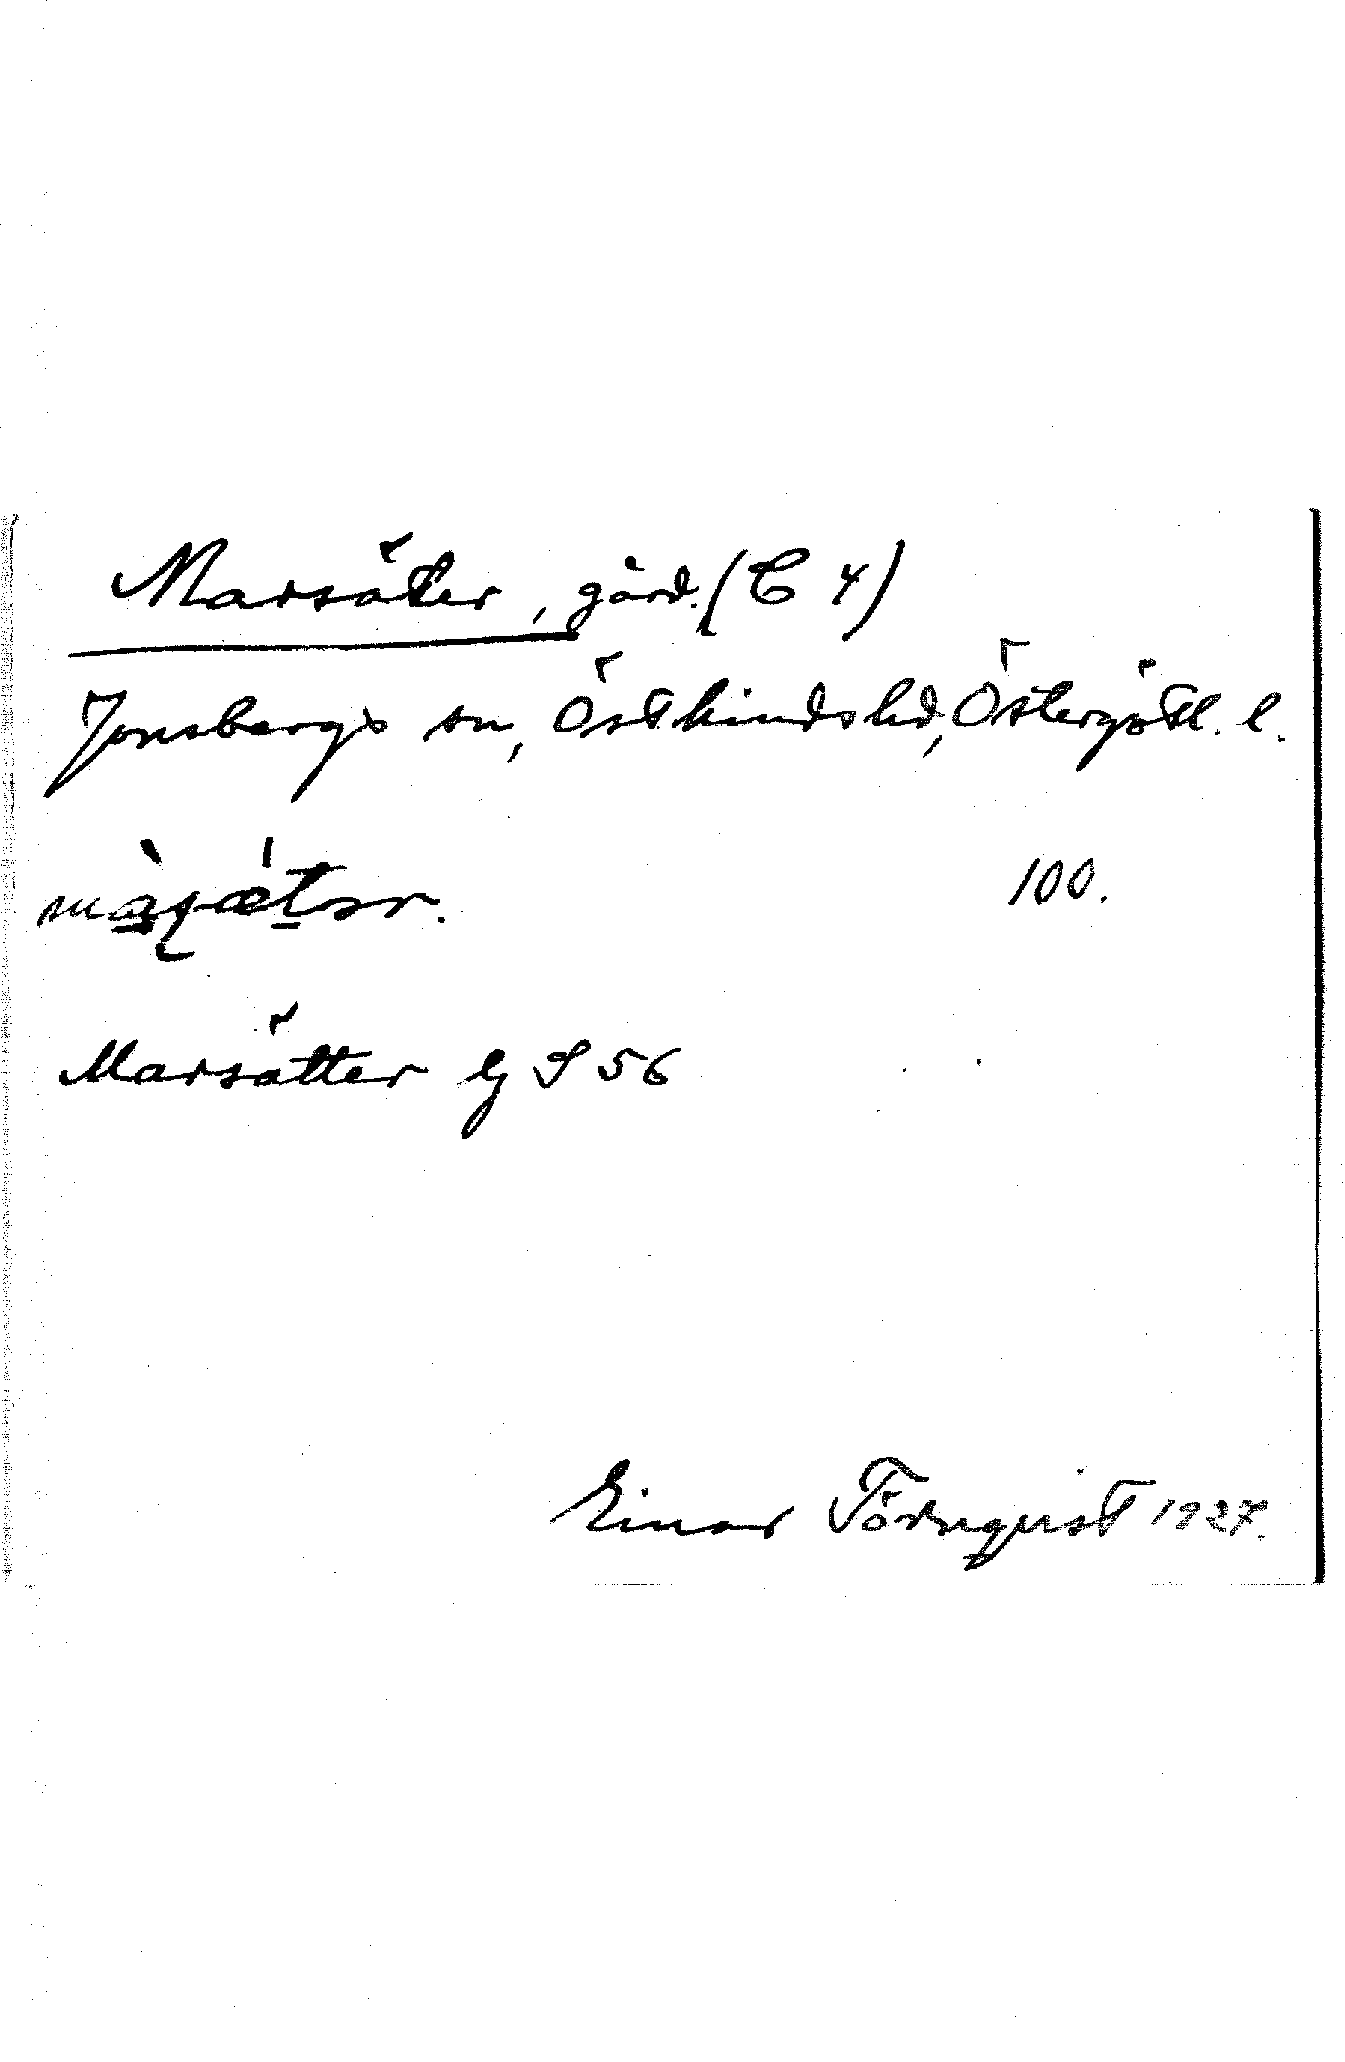 Marsäter, gård. (C 4)
Jonsbergs sn, Östkinds hd, Östergötl. l.
100.
Marsätter Lj S 56
Einar Törnqvist 1927.